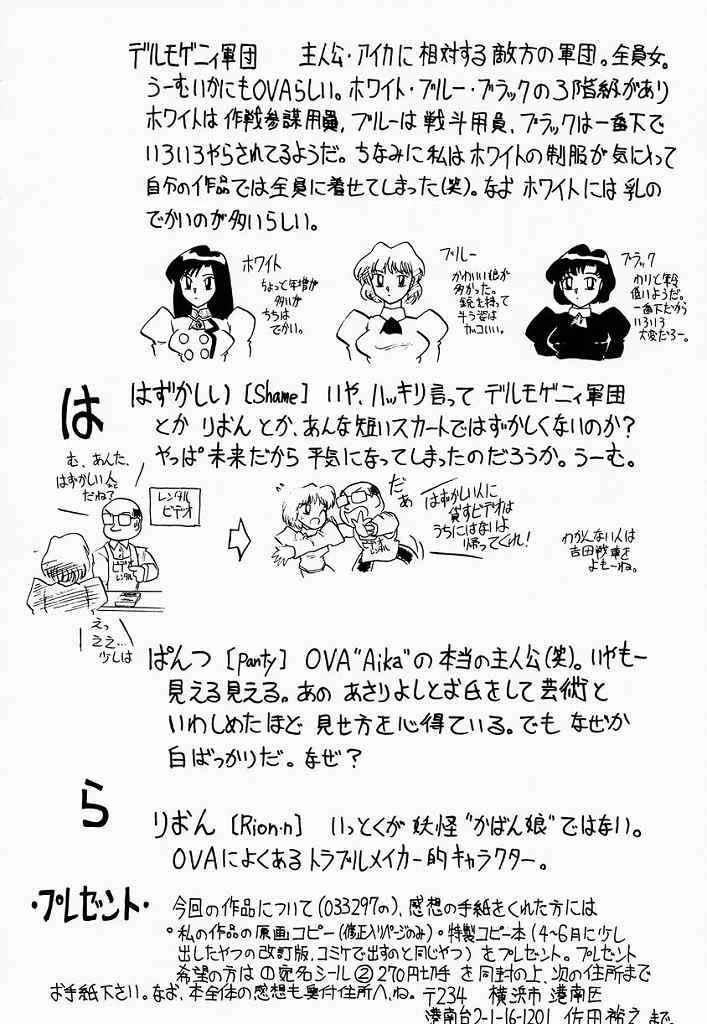 デルモゲニィ軍団　主人公・アイカに相対する敵方の軍団。全員女。
うーむいかにもOVAらしい。ホワイト・ブルー・ブラックの3階級があり
ホワイトは作戦参謀用員，ブルーは戦斗用員，ブラックは一番下で
いろいろやらされてるようだ。ちなみに私はホワイトの制服が気にいって
自分の作品では全員に着せてしまった(笑)。なお ホワイトには乳の
でかいのが多いらしい。
ホワイト
ちょっと年増が
多いが
ちちは
でかい。
ブルー
かわいい娘が
多かった。
銃を持って
斗う姿は
カッコいい。
ブラック
わりと年令
低いようだ。
一番下だから
いろいろ
大変だろー。
は
はずかしい [Shame] いや、ハッキリ言って デルモゲニィ軍団
とか りおん とか、あんな短いスカートではずかしくないのか?
やっぱ 未来だから 平気になってしまったのだろうか。うーむ。
む、あんた、
はずかしい人
だね?
レンタル
ビデオ
えっ
ええ…
少しは
だぁ
はずかしい人に
貸すビデオは
うちにはないよ
帰ってくれ!
わかんない人は
吉田戦車を
よもーね。
ぱんつ [panty] OVA"Aika"の本当の主人公(笑)。いやもー
見える見える。あの あさりよしとお氏をして芸術と
いわしめたほど 見せ方を心得ている。でも なぜか
白ばっかりだ。なぜ?
ら
りおん [Rion・n] いっとくが 妖怪"かばん娘"ではない。
OVAによくあるトラブルメイカー的キャラクター。
・プレゼント・
今回の作品について(033297の)、感想の手紙をくれた方には
。私の作品の原画コピー(修正入りページのみ)・特製コピー本(4〜6月に少し
出したやつの改訂版、コミケで出すのと同じやつ)をプレゼント。プレゼント
希望の方は①宛名シール②270円切手 を同封の上、次の住所まで
お手紙下さい。なお、本全体の感想も奥付住所へ、ね。〒234 横浜市港南区
港南台2-1-16-1201 佐田裕之 まで